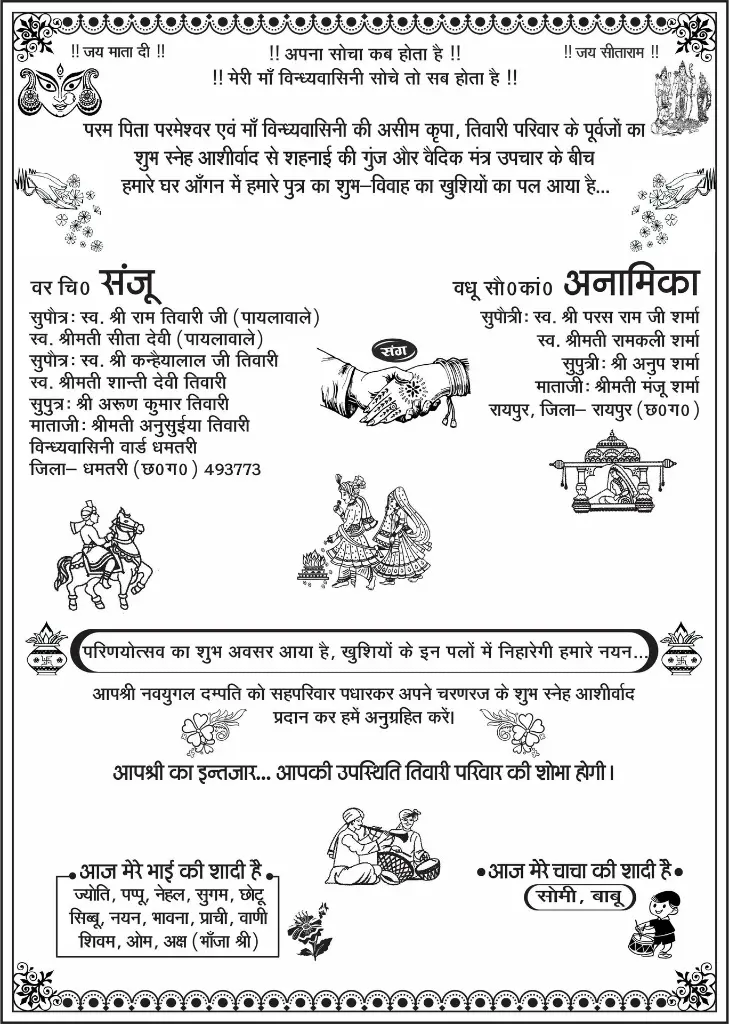 !! जय माता दी !!
!! अपना सोचा कब होता है !!
!! जय सीताराम !!
!! मेरी माँ विन्ध्यवासिनी सोचे तो सब होता है !!
परम पिता परमेश्वर एवं माँ विन्ध्यवासिनी की असीम कृपा, तिवारी परिवार के पूर्वजों का
शुभ स्नेह आशीर्वाद से शहनाई की गुंज और वैदिक मंत्र उपचार के बीच
हमारे घर आँगन में हमारे पुत्र का शुभ–विवाह का खुशियों का पल आया है...
वर चि0 संजू
सुपौत्रः स्व. श्री राम तिवारी जी (पायलावाले)
स्व. श्रीमती सीता देवी (पायलावाले)
सुपौत्रः स्व. श्री कन्हैयालाल जी तिवारी
स्व. श्रीमती शान्ती देवी तिवारी
सुपुत्रः श्री अरूण कुमार तिवारी
माताजीः श्रीमती अनुसुईया तिवारी
विन्ध्यवासिनी वार्ड धमतरी
जिला– धमतरी (छ0ग0) 493773
संग
वधू सौ0कां0 अनामिका
सुपौत्रीः स्व. श्री परस राम जी शर्मा
स्व. श्रीमती रामकली शर्मा
सुपुत्रीः श्री अनुप शर्मा
माताजीः श्रीमती मंजू शर्मा
रायपुर, जिला– रायपुर (छ0ग0)
परिणयोत्सव का शुभ अवसर आया है, खुशियों के इन पलों में निहारेगी हमारे नयन...
आपश्री नवयुगल दम्पति को सहपरिवार पधारकर अपने चरणरज के शुभ स्नेह आशीर्वाद
प्रदान कर हमें अनुग्रहित करें।
आपश्री का इन्तजार... आपकी उपस्थिति तिवारी परिवार की शोभा होगी।
आज मेरे भाई की शादी है
ज्योति, पप्पू, नेहल, सुगम, छोटू
सिब्बू, नयन, भावना, प्राची, वाणी
शिवम, ओम, अक्ष (भाँजा श्री)
आज मेरे चाचा की शादी है
सोमी, बाबू